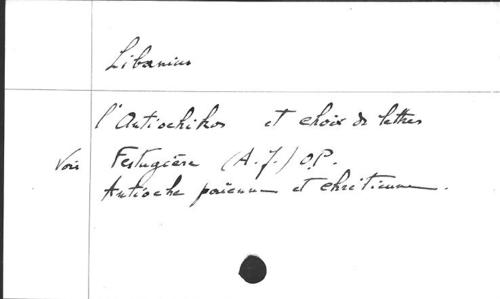 Libanius
l'Antiochikos et choix de lettres
Voir Festugière (A.J.) O.P.
Antioche païenne et chrétienne.